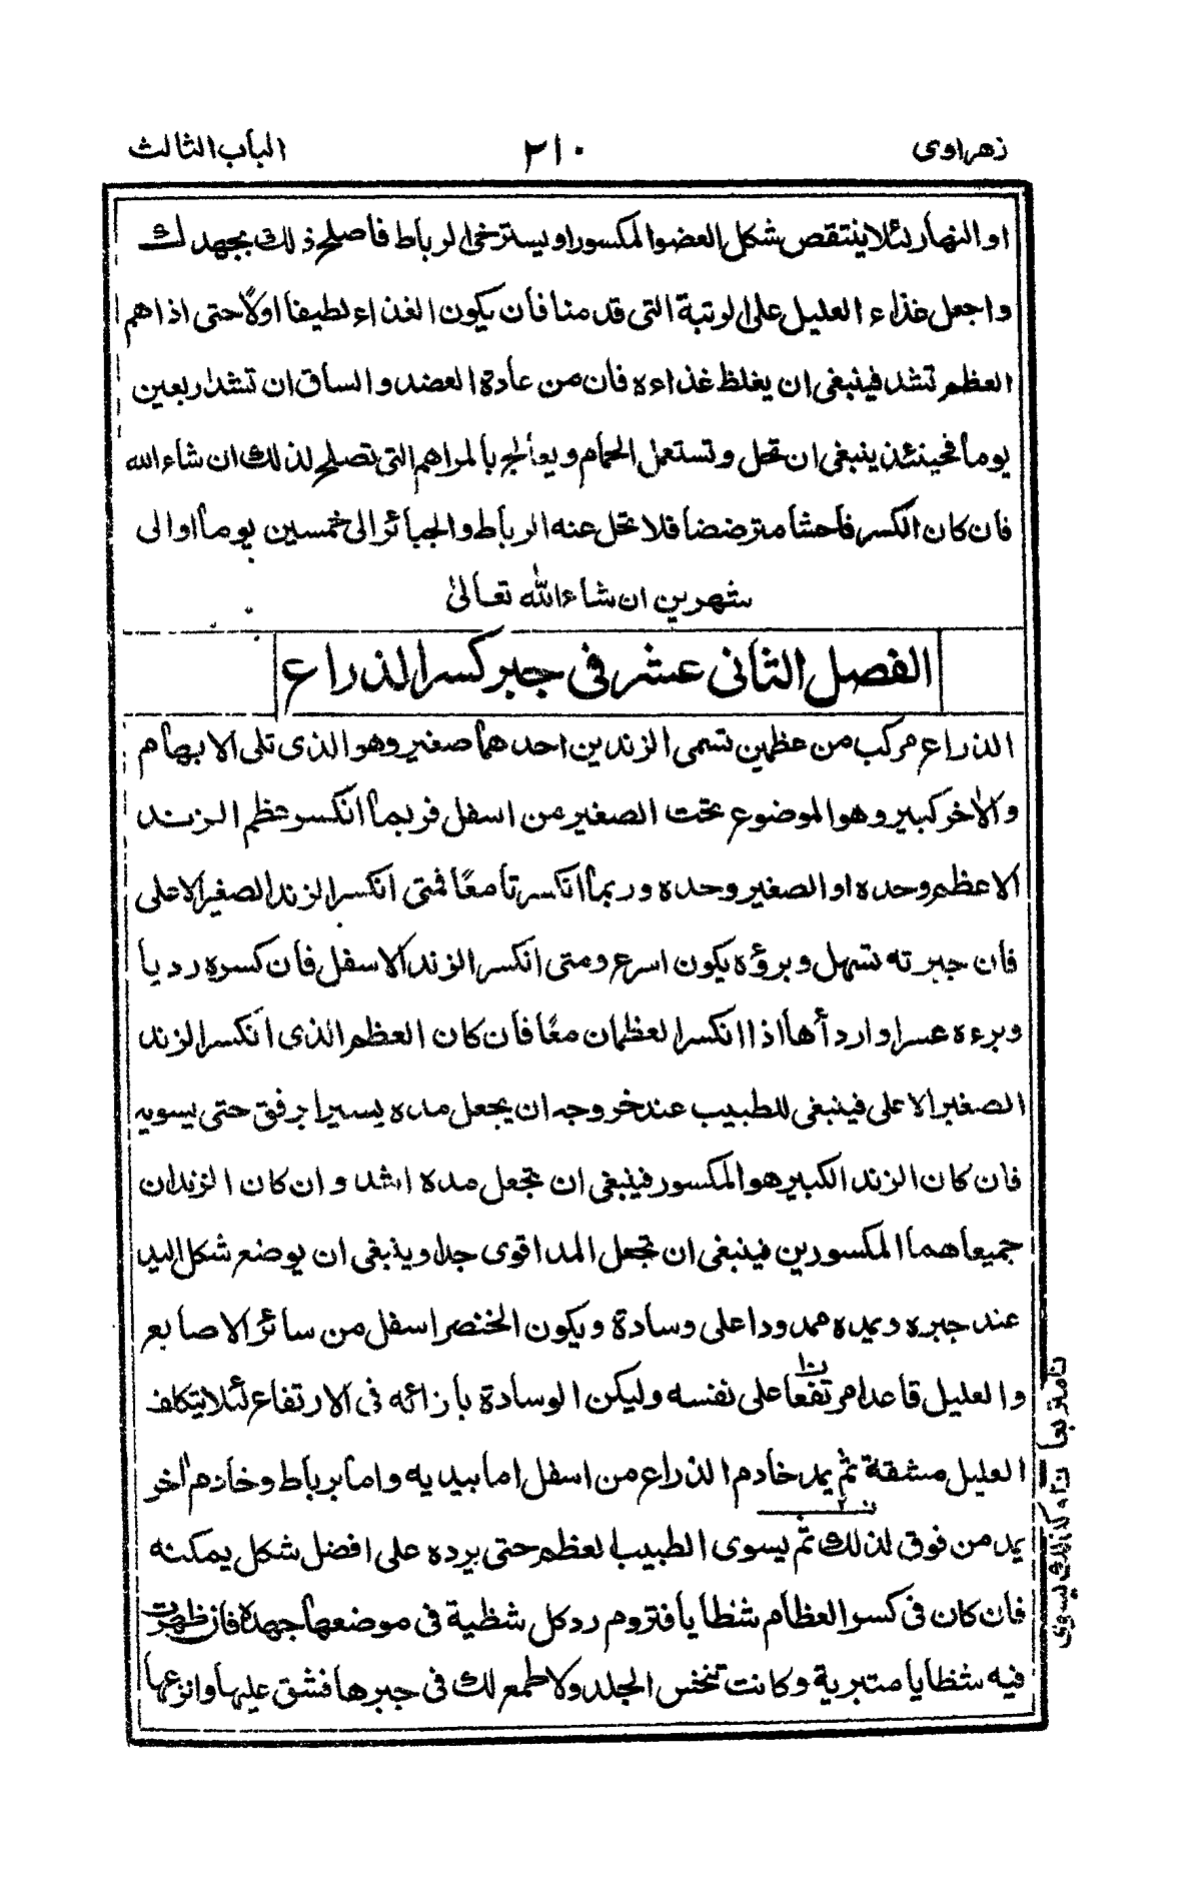 زهراوى ٢١٠ الباب الثالث
او النهار لئلا ينتقص شكل العضو المكسور او يسترخى الرباط فاصلح ذلك بجهدك
واجعل غذاء العليل على الرتبة التى قدمنا فان يكون الغذاء لطيفا اولاً حتى اذا هم
العظم تشد فينبغى ان يغلظ غذاءه فان من عادة العضد والساق ان تشد اربعين
يوما فحينئذ ينبغى ان تحل وتستعمل الحمام ويعالج بالمراهم التى تصلح لذلك ان شاء الله
فان كان الكسر فاحشا مترضضا فلا تحل عنه الرباط والجبائر الى خمسين يوما او الى
شهرين ان شاء الله تعالىٰ
الفصل الثانى عشر فى جبر كسر الذراع
الذراع مركب من عظمين تسمى الزندين احدهما صغير وهو الذى تلى الابهام
والاٰخر كبير وهو الموضوع تحت الصغير من اسفل فربما انكسر عظم الزند
الاعظم وحده او الصغير وحده وربما انكسرتا معًا فمتى انكسر الزند الصغير الاعلى
فان جبرته تسهل وبرؤه يكون اسرع ومتى انكسر الزند الاسفل فان كسره رديا
وبرءه عسرا واردأها اذا انكسر العظمان معًا فان كان العظم الذى انكسر الزند
الصغير الاعلى فينبغى للطبيب عند خروجه ان يجعل مده يسيرا برفق حتى يسويه
فان كان الزند الكبير هو المكسور فينبغى ان تجعل مده اشد وان كان الزندان
جميعا هما المكسورين فينبغى ان تجعل المد اقوى جدا وينبغى ان يوضع شكل اليد
عند جبره ويمده ممدودا على وسادة ويكون الخنصر اسفل من سائر الاصابع
والعليل قاعدا مرتفعا على نفسه وليكن الوسادة بازائه فى الارتفاع لئلا يتكلف
العليل مشقة ثم يمد خادم الذراع من اسفل اما بيديه واما برباط وخادم اٰخر
يمد من فوق لذلك ثم يسوى الطبيب العظم حتى يرده على افضل شكل يمكنه
فان كان فى كسر العظام شظايا فتروم رد كل شظية فى موضعها جهدك فان ظهرت
فيه شظايا متبرية وكانت تنخس الجلد ولا طمع لك فى جبرها فشق عليها وانزعها